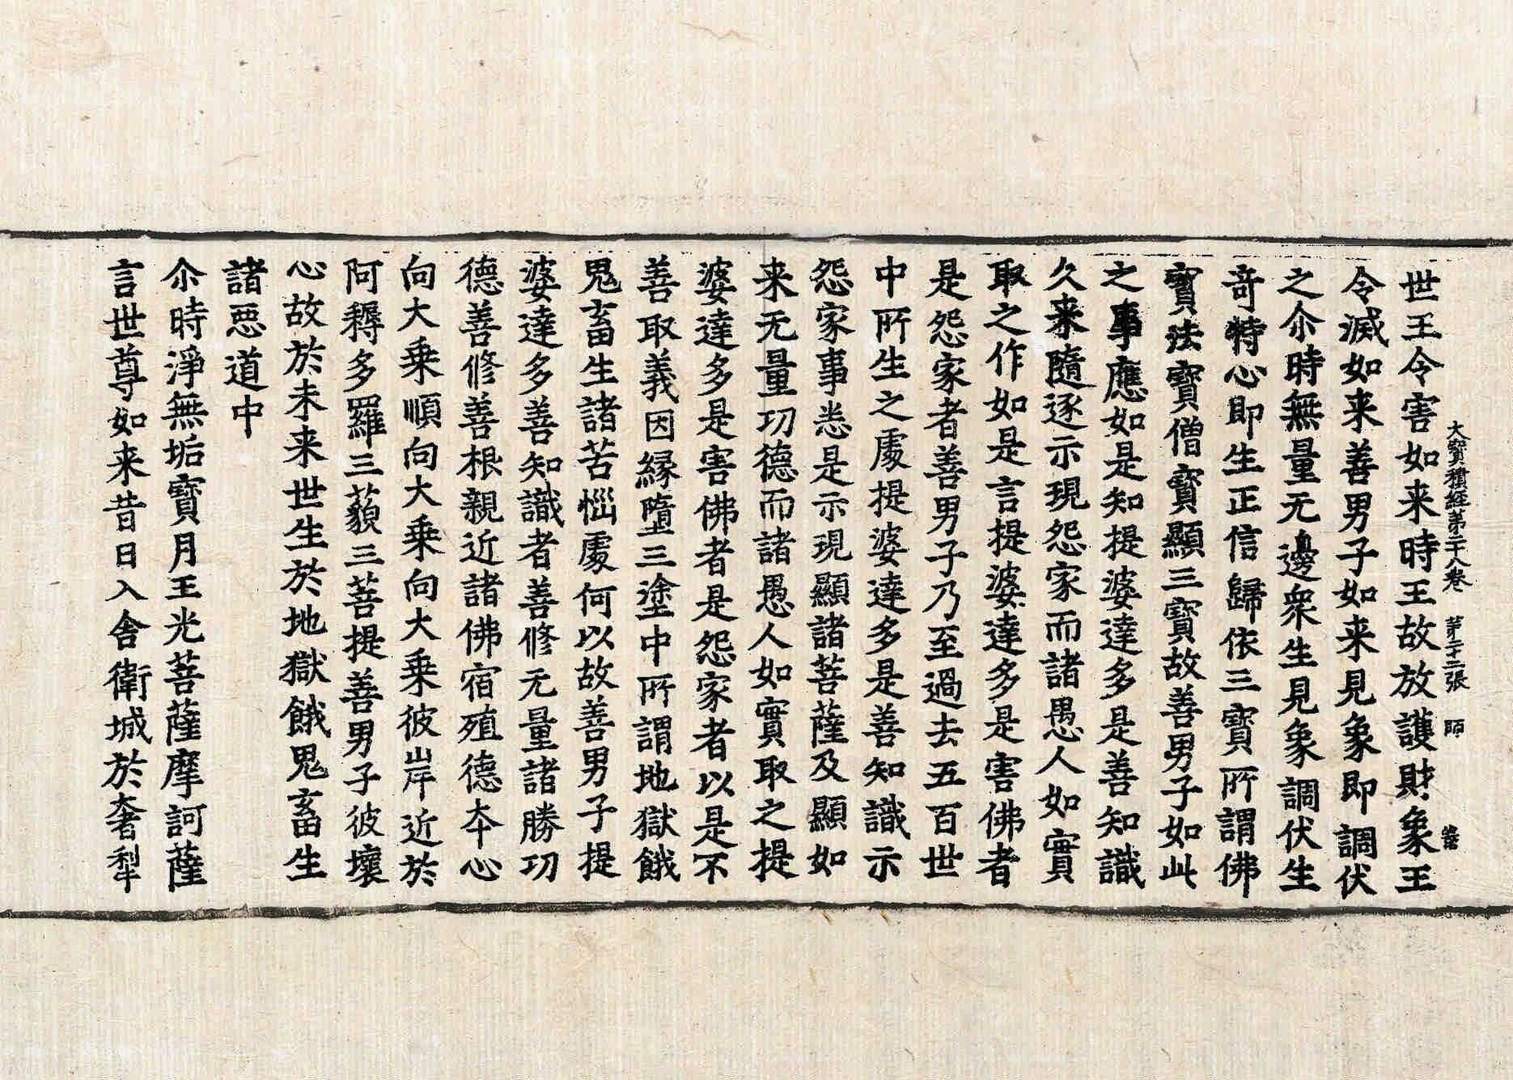 大寶積經第二十八卷 第二十二張 師
世王令害如来時王故放護財象王
令滅如来善男子如来見象即調伏
之尒時無量无邊衆生見象調伏生
竒特心即生正信歸依三寶所謂佛
寶法寶僧寶顯三寶故善男子如此
之事應如是知提婆達多是善知識
久来隨逐示現怨家而諸愚人如實
取之作如是言提婆達多是害佛者
是怨家者善男子乃至過去五百世
中所生之處提婆達多是善知識示
怨家事悉是示現顯諸菩薩及顯如
来无量功德而諸愚人如實取之提
婆達多是害佛者是怨家者以是不
善取義因縁墮三塗中所謂地獄餓
鬼畜生諸苦惱處何以故善男子提
婆達多善知識者善修无量諸勝功
德善修善根親近諸佛宿殖德夲心
向大乘順向大乘向大乘彼岸近於
阿耨多羅三藐三菩提善男子彼壞
心故於未来世生於地獄餓鬼畜生
諸惡道中
尒時淨無垢寶月王光菩薩摩訶薩
言世尊如来昔日入舍衛城於奢犁